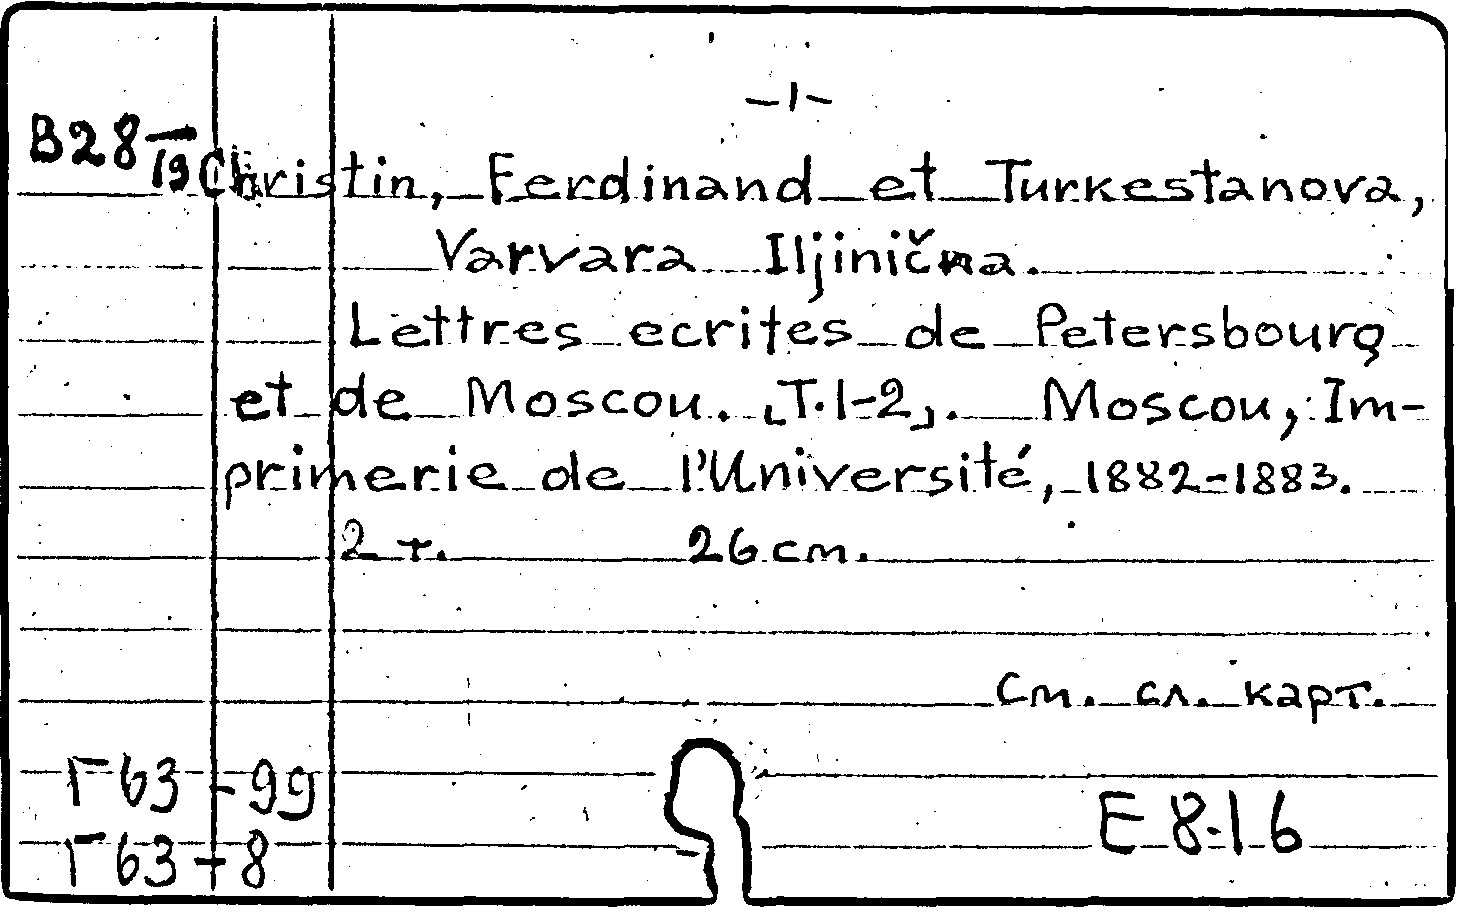 -1-
B28 19 Christin, Ferdinand et Turkestanova,
Varvara Iljinična.
Lettres ecrites de Petersbourg
et de Moscou. [T.1-2]. Moscou, Im-
primerie de l'Université, 1882-1883.
2 т. 26 cm.
См. сл. карт.
Г 63-99
Г 63-8
E 8-16